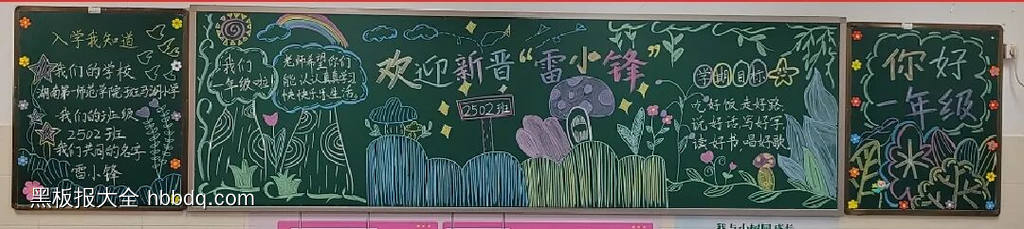 入学我知道
我们的学校
湖南第一师范学院斑马湖小学
我们的班级
2502班
我们共同的名字
雷小锋
我们
一年级啦!
老师希望你们
能认认真真学习
快快乐乐生活。
欢迎新晋“雷小锋”
2502班
学期目标
吃好饭 走好路
说好话 写好字
读好书 唱好歌
你好
一年级
黑板报大全 hbbdq.com